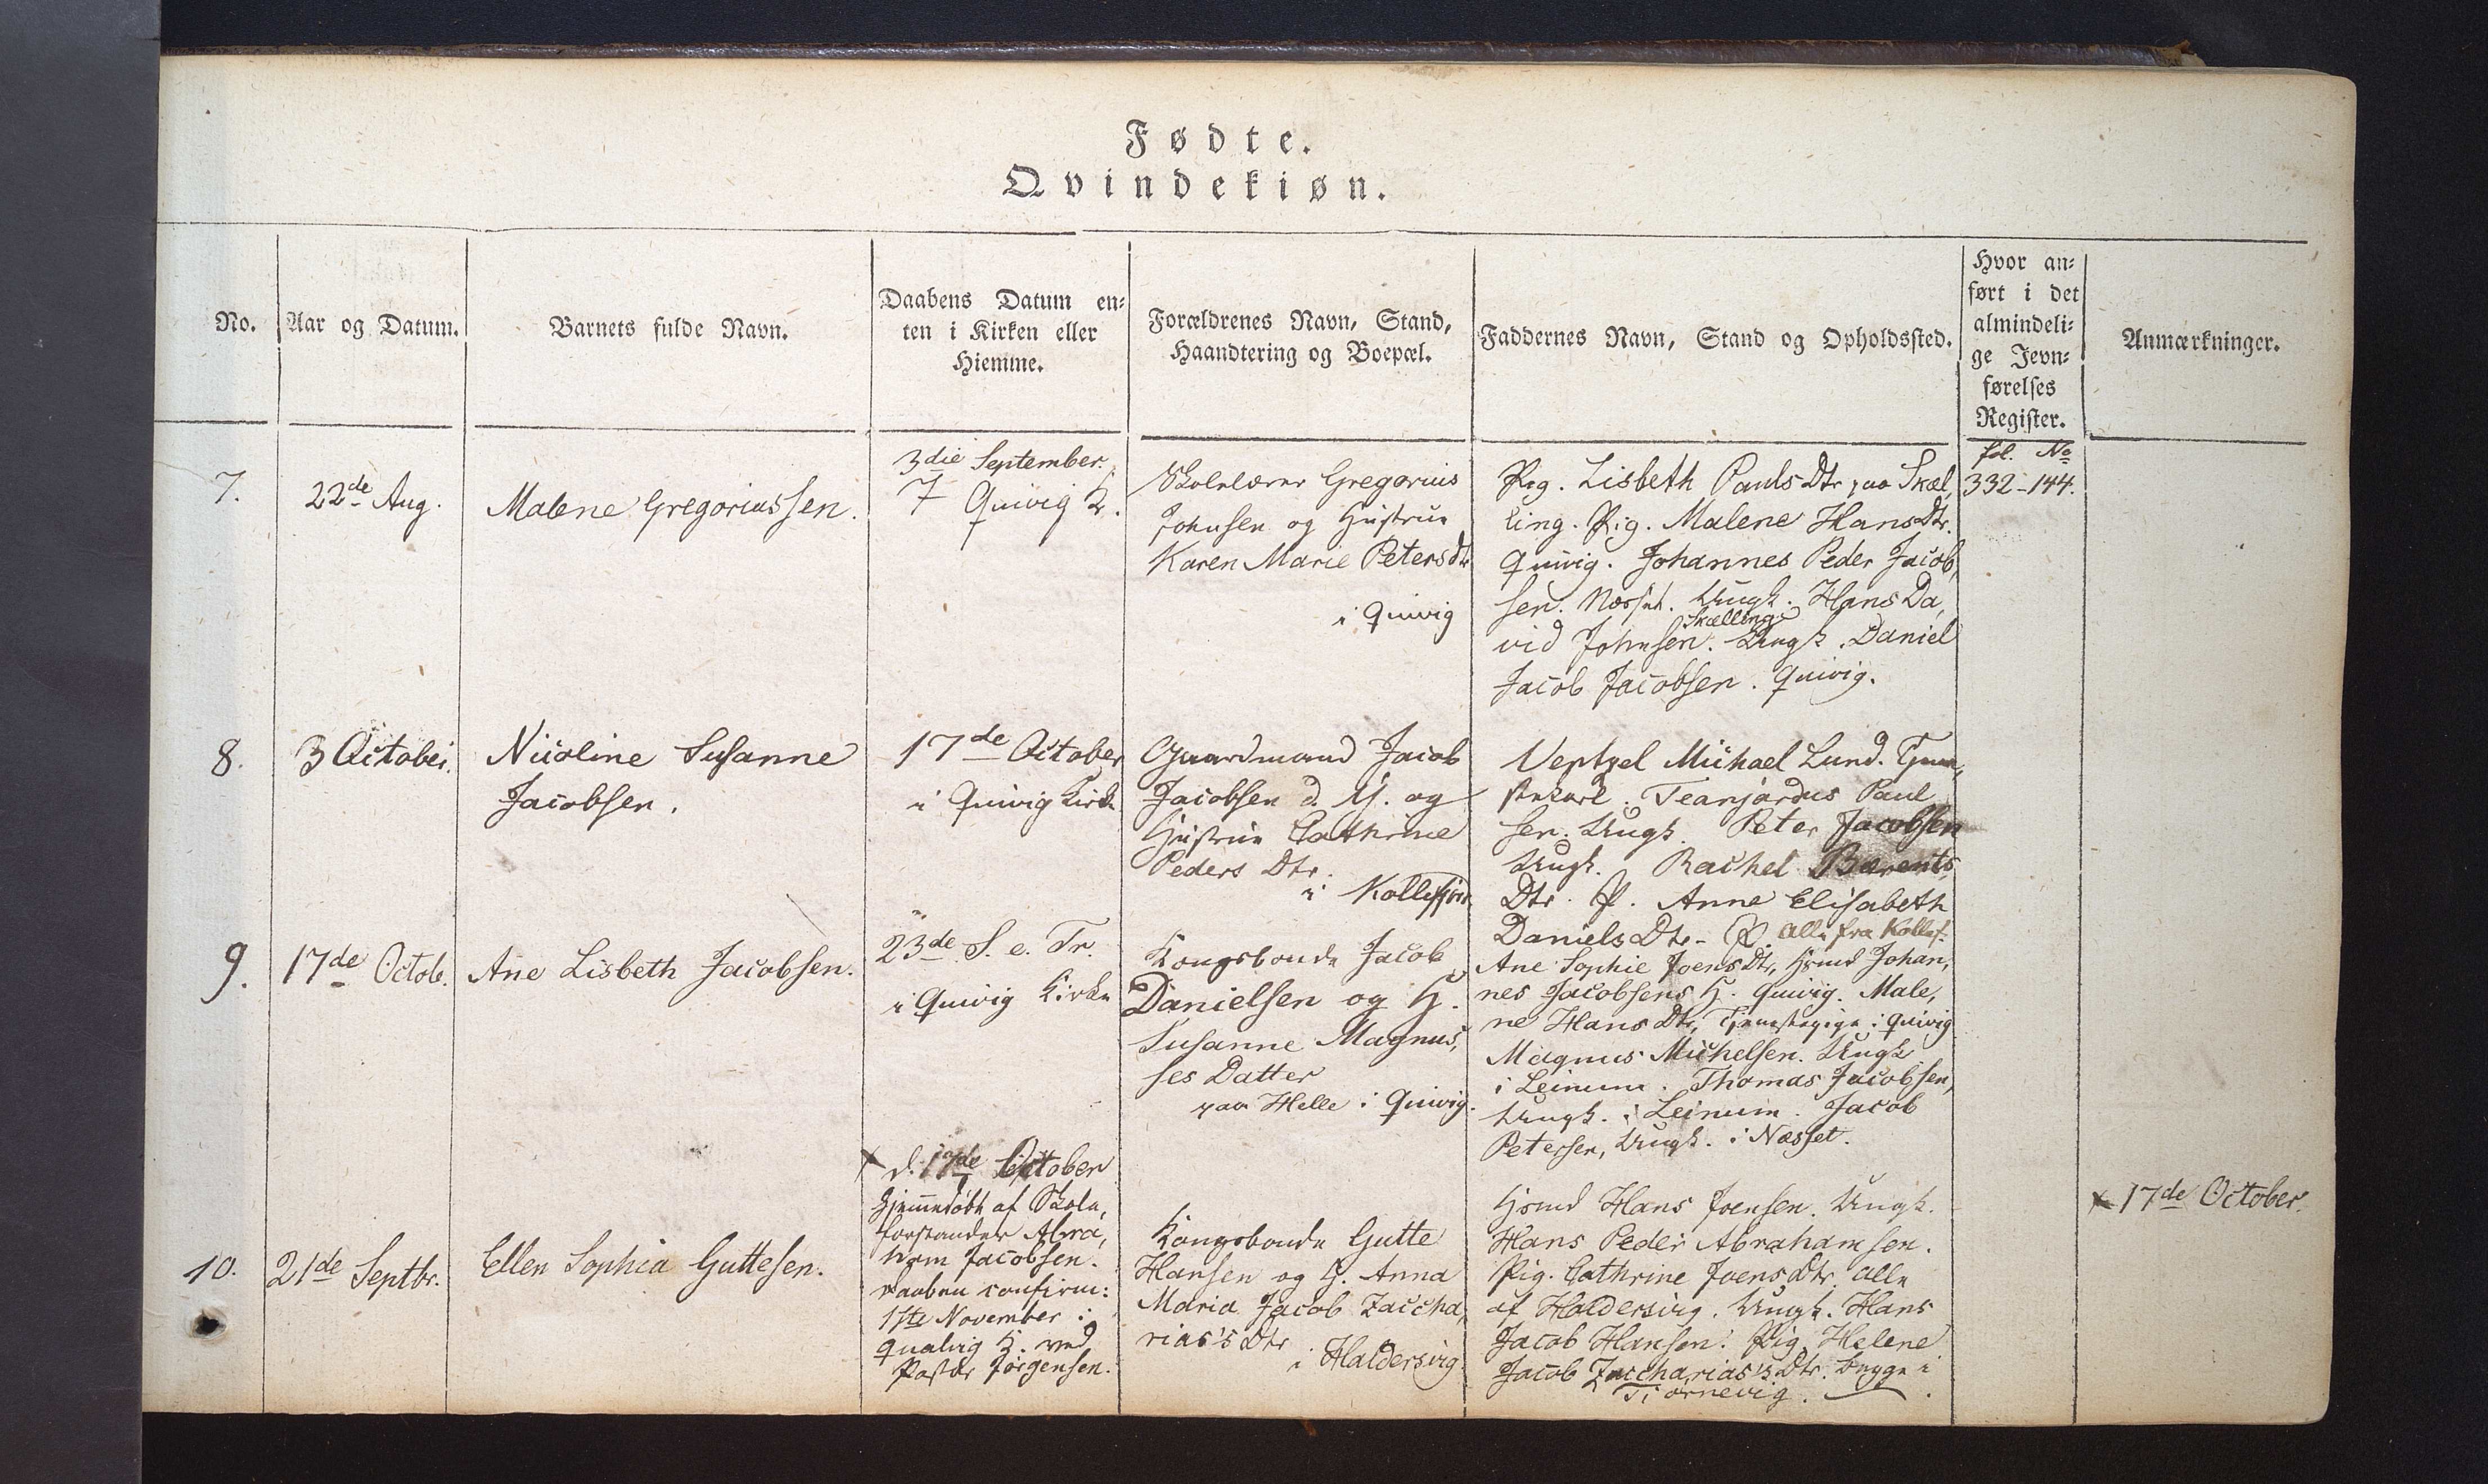 Fødte.
Qvindekiøn.
No.
Aar og Datum.
Barnets fulde Navn.
Daabens Datum en-
ten i Kirken eller
Hiemme.
Forældrenes Navn, Stand,
Haandtering og Boepæl.
Faddernes Navn, Stand og Opholdssted.
Hvor an-
ført i det
almindeli-
ge Jevn-
førelses
Register.
Anmærkninger.
7.
22de Aug.
Malene Gregoriussen.
3die September.
7 Quivig K.
Skolelærer Gregorius
Johnsen og Hustrue
Karen Marie Petersdtr
i Quivig
Pig. Lisbeth Pauls Dtr paa Skæl,
ling. Pig. Malene Hans Dtr.
Quivig. Johannes Peder Jacob,
sen. Næsset. Ungk. Hans Da,
Skælling
vid Johnsen. Ungk. Daniel
Jacob Jacobsen. Quivig.
fol. No
332-144.
8.
3 October.
Nicoline Susanne
Jacobsen.
17de October
i Quivig Kirke
Gaardmand Jacob
Jacobsen d. Y. og
Hustrue Cathrine
Peders Dtr.
i Kollefjord
Ventzel Michael Lund. Tjene,
stekarl. Teanjardus Paul
sen. Ungk. Peter Jacobsen
Ungk. Rachel Barents,
Dtr. P. Anne Elisabeth
Daniels Dtr. P. alle fra Kollef.
9.
17de Octob.
Ane Lisbeth Jacobsen.
23de S. e. Tr.
i Quivig Kirke
Kongsbonde Jacob
Danielsen og H.
Susanne Magnus,
ses Datter
paa Helle i Quivig.
Ane Sophie Joens Dtr, Hsmd Johan,
nes Jacobsens H. Quivig. Male,
ne Hans Dtr, Tjenestepige i Quivig
Magnus Michelsen. Ungk
i Leinum. Thomas Jacobsen,
Ungk. i Leinum. Jacob
Petersen, Ungk. i Næsset.
10.
21de Septbr.
Ellen Sophia Guttesen.
x d. 17de October
Hjemmedøbt af Skole,
forstander Abra,
ham Jacobsen.
Daaben confirm:
1ste November i
Qualvig K. ved
Pastor Jørgensen.
Kongsbonde Gutte
Hansen og H. Anna
Maria Jacob Zaccha,
rias's Dtr
i Haldersvig
Hsmd Hans Joensen. Ungk.
Hans Peder Abrahamsen.
Pig. Cathrine Joens Dtr. alle
af Haldersvig. Ungk. Hans
Jacob Hansen. Pig. Helene
Jacob Zaccharias's Dtr. begge i
Tiørnevig.
x 17de October.